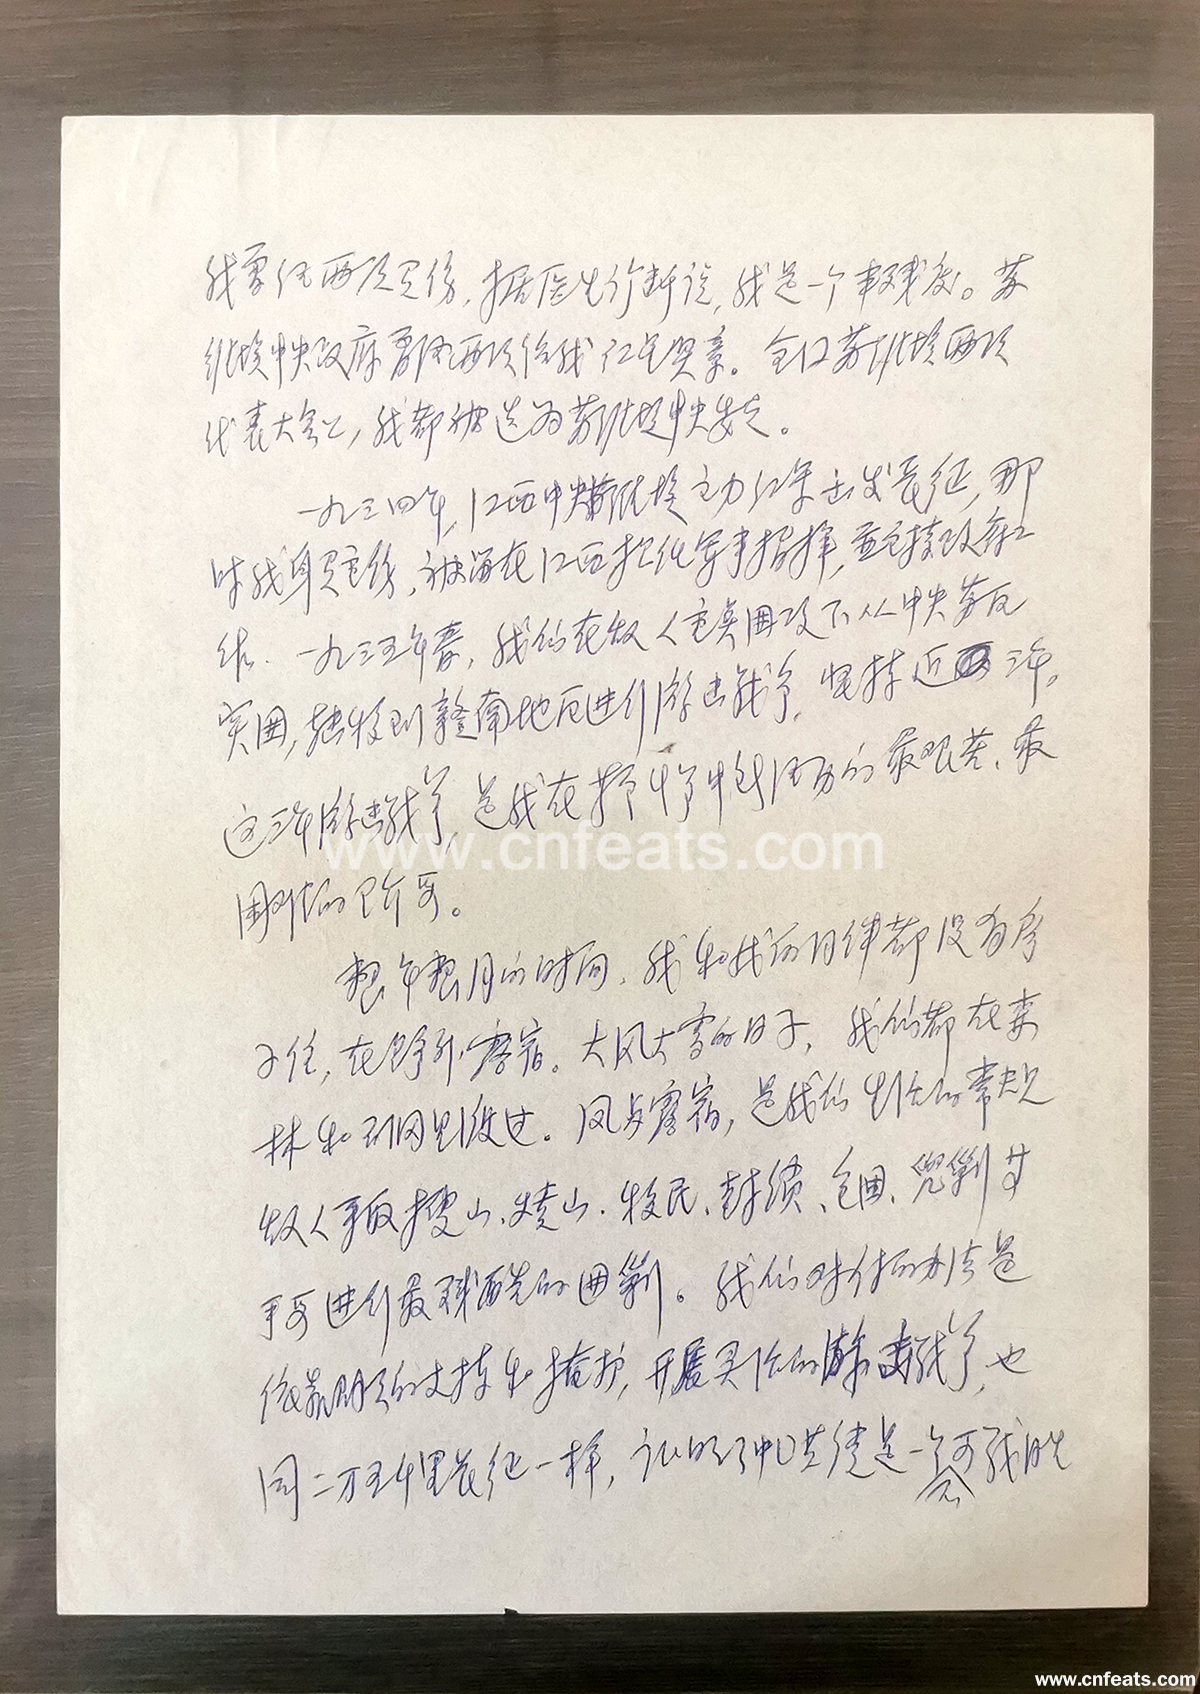 我曾经两次负伤，据医生诊断说，我是一个半残废。苏
维埃中央政府曾经两次给我红星奖章。全江苏维埃两次
代表大会上，我都被选为苏维埃中央委员。
一九三四年，江西中央苏维埃主力红军出发长征，那
时我身负重伤，被留在江西担任军事指挥，并主持政府工
作。一九三五年春，我们在敌人重兵围攻下从中央苏区
突围，转移到赣南地区进行游击战争，坚持近三年。
这三年游击战争，是我在革命斗争中所经历的最艰苦、最
困难的阶段。
整年整月的时间，我和我的同伴都没有房
子住，在野外露宿。大风大雪的日子，我们都在森
林和石洞里度过。风与露宿，是我们生活的常规
敌人采取搜山、烧山、移民、封锁、包围、兜剿等
手段进行最残酷的围剿。我们的对付的办法是
依靠群众的支持和掩护，开展灵活的游击战争，也
同二万五千里长征一样，证明了中国共产党是一个不可战胜
www.cnfeats.com
www.cnfeats.com